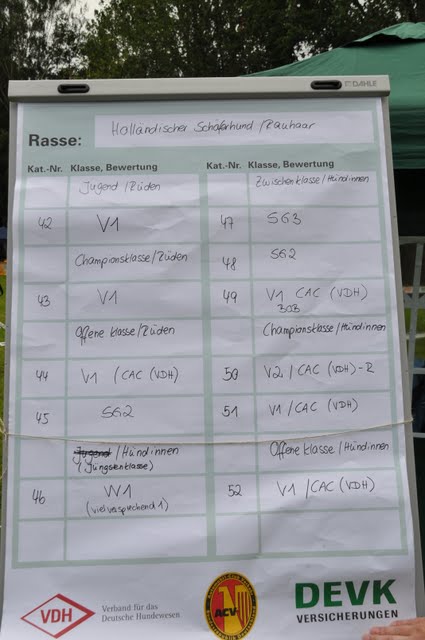 DAHLE
Rasse: Holländischer Schäferhund / Rauhaar
Kat.-Nr. Klasse, Bewertung
Jugend / Rüden
42 V1
Championsklasse / Rüden
43 V1
Offene Klasse / Rüden
44 V1 / CAC (VDH)
45 SG2
Jugend / Hündinnen
(Jüngstenklasse)
46 VV1
(vielversprechend 1)
Kat.-Nr. Klasse, Bewertung
Zwischenklasse / Hündinnen
47 SG3
48 SG2
49 V1 CAC (VDH)
BOB
Championsklasse / Hündinnen
50 V2 / CAC (VDH)-R
51 V1 / CAC (VDH)
Offene Klasse / Hündinnen
52 V1 / CAC (VDH)
VDH
Verband für das
Deutsche Hundewesen
ACV
DEVK
VERSICHERUNGEN